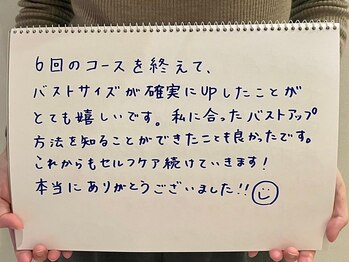 6回のコースを終えて、
バストサイズが確実にUPしたことが
とても嬉しいです。私に合ったバストアップ
方法を知ることができたことも良かったです。
これからもセルフケア続けていきます!
本当にありがとうございました!!